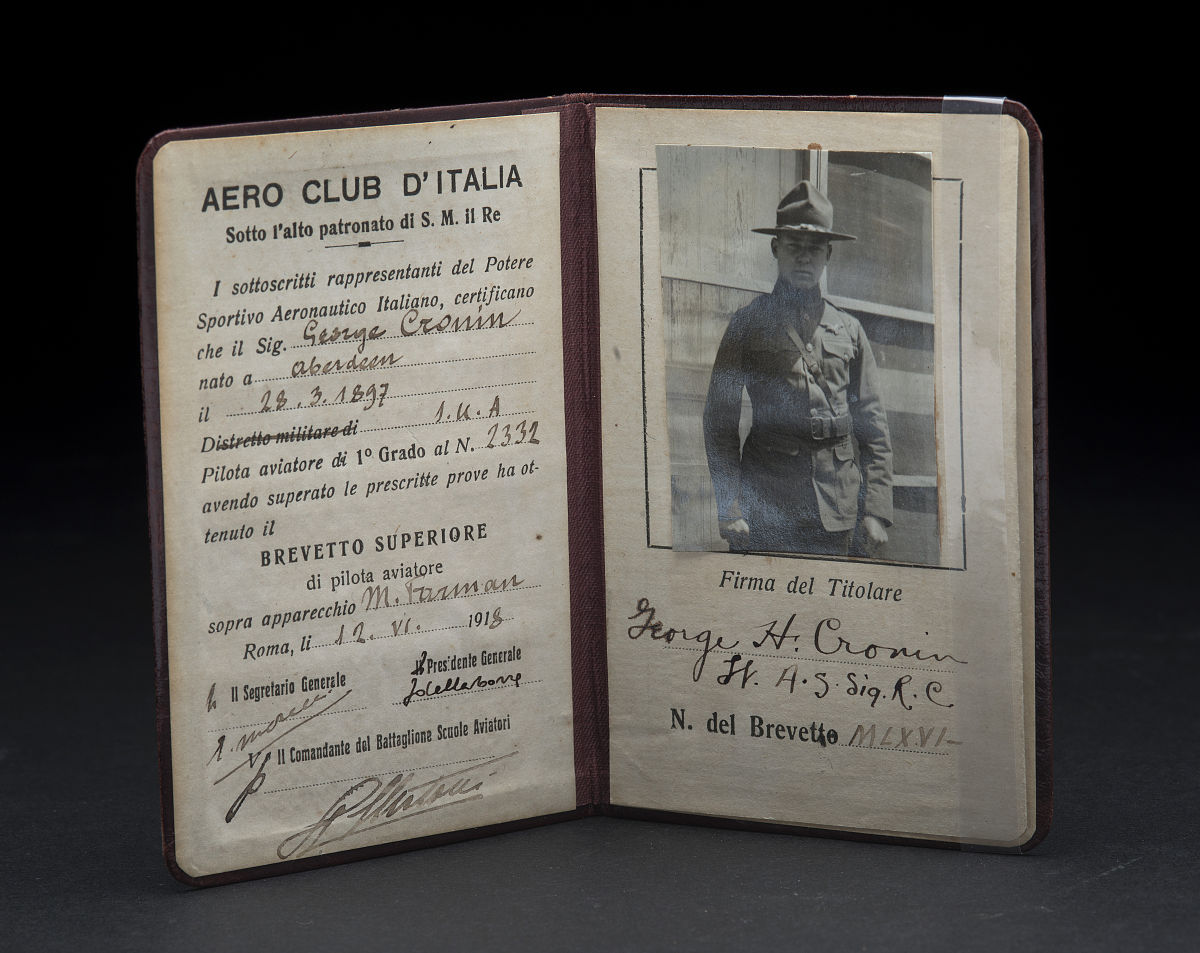 AERO CLUB D'ITALIA
Sotto l'alto patronato di S. M. il Re
I sottoscritti rappresentanti del Potere
Sportivo Aeronautico Italiano, certificano
che il Sig. George Cronin
nato a Aberdeen
il 28.3.1897
Distretto militare di I.U.A
Pilota aviatore di 1º Grado al N. 2332
avendo superato le prescritte prove ha ot-
tenuto il
BREVETTO SUPERIORE
di pilota aviatore
sopra apparecchio M. Farman
Roma, li 12. VI. 1918
Il Segretario Generale
Il Presidente Generale
Il Comandante del Battaglione Scuole Aviatori
Firma del Titolare
George H. Cronin
Lt. A.S. Sig. R.C
N. del Brevetto MLXVI-